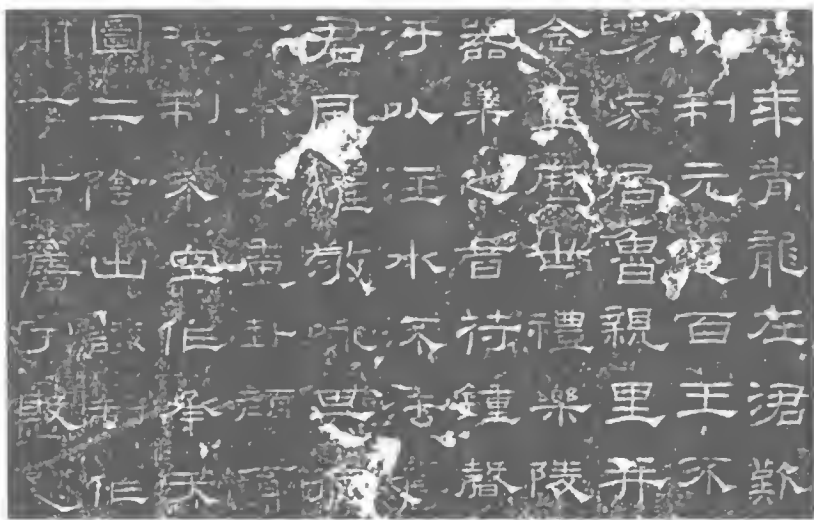 年青龍在涒歎
制元道百王不
舅家居魯親里并
念聖歷世禮樂陵
器樂之音符鍾磬
汙以注水流法
君風燿敬咏其德
畫卦顏育
吐制不空作承天
圖二陰出讖制作
古舊宇